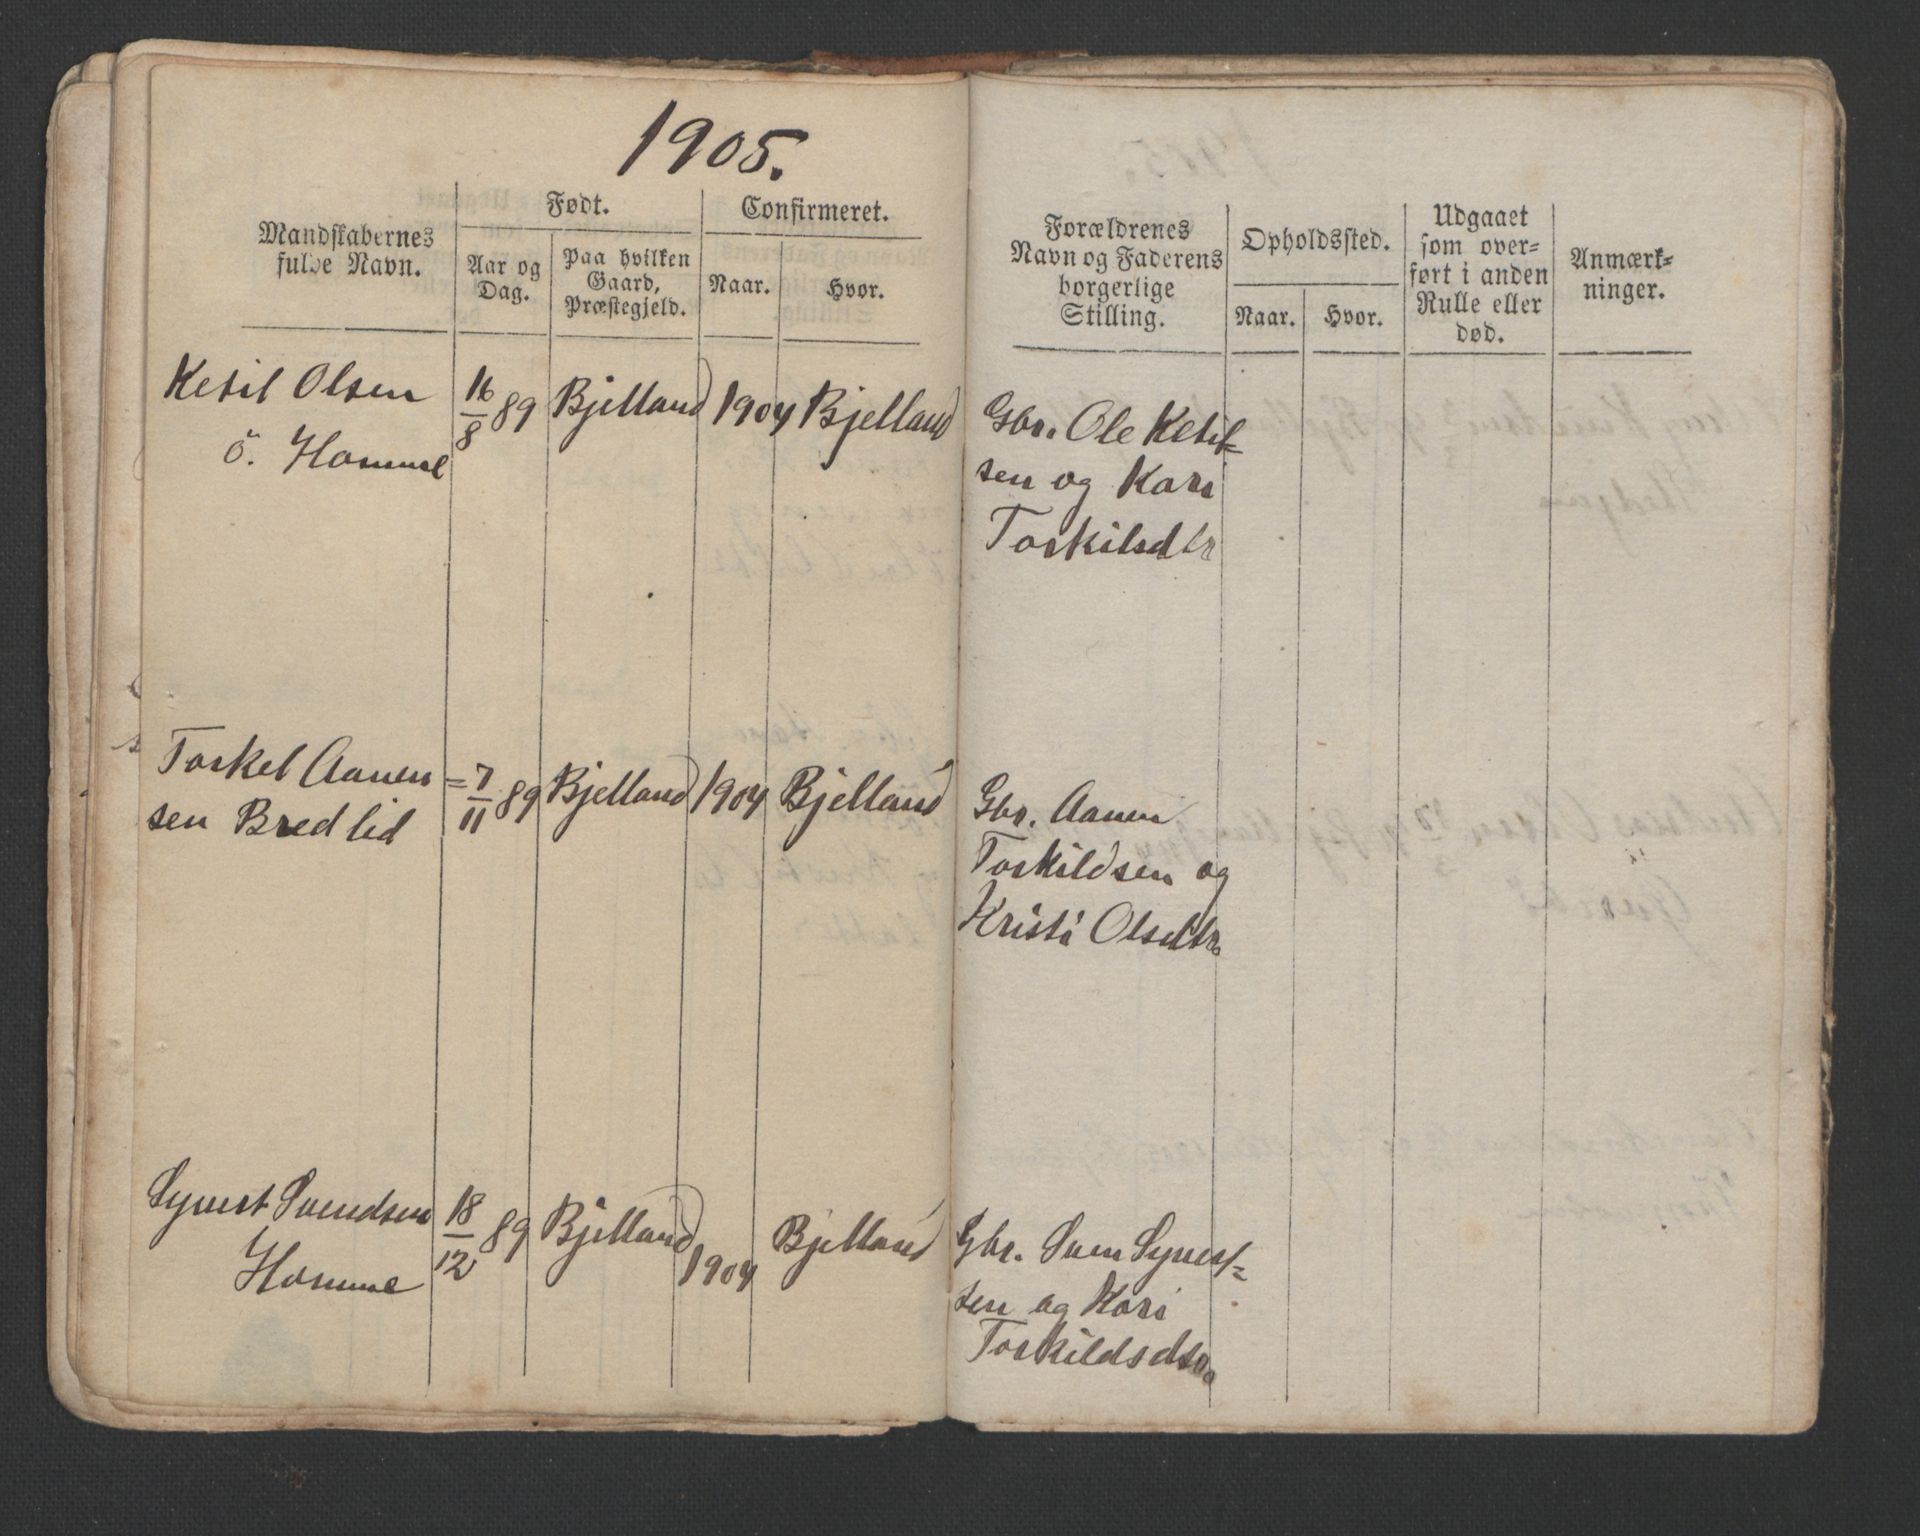 1905.
Mandskabernes fulde Navn.
Født.
Aar og Dag.
Paa hvilken Gaard, Præstegjeld.
Confirmeret.
Naar.
Hvor.
Forældrenes Navn og Faderens borgerlige Stilling.
Opholdssted.
Naar.
Hvor.
Udgaaet som over-ført i anden Rulle eller død.
Anmærk-ninger.
Ketil Olsen 16/8 89 Bjelland 1904 Bjelland Gbr. Ole Ketil-
ö. Homme sen og Kari
Torkilsdtr
Torkel Aanen= 7/11 89 Bjelland 1904 Bjelland Gbr. Aanen
sen Bredlid Torkildsen og
Kristi Olsdtr.
Syvert Svendsen 18/12 89 Bjelland 1904 Bjelland Gbr. Sven Syvert=
Homme sen og Kari
Torkildsdtr.